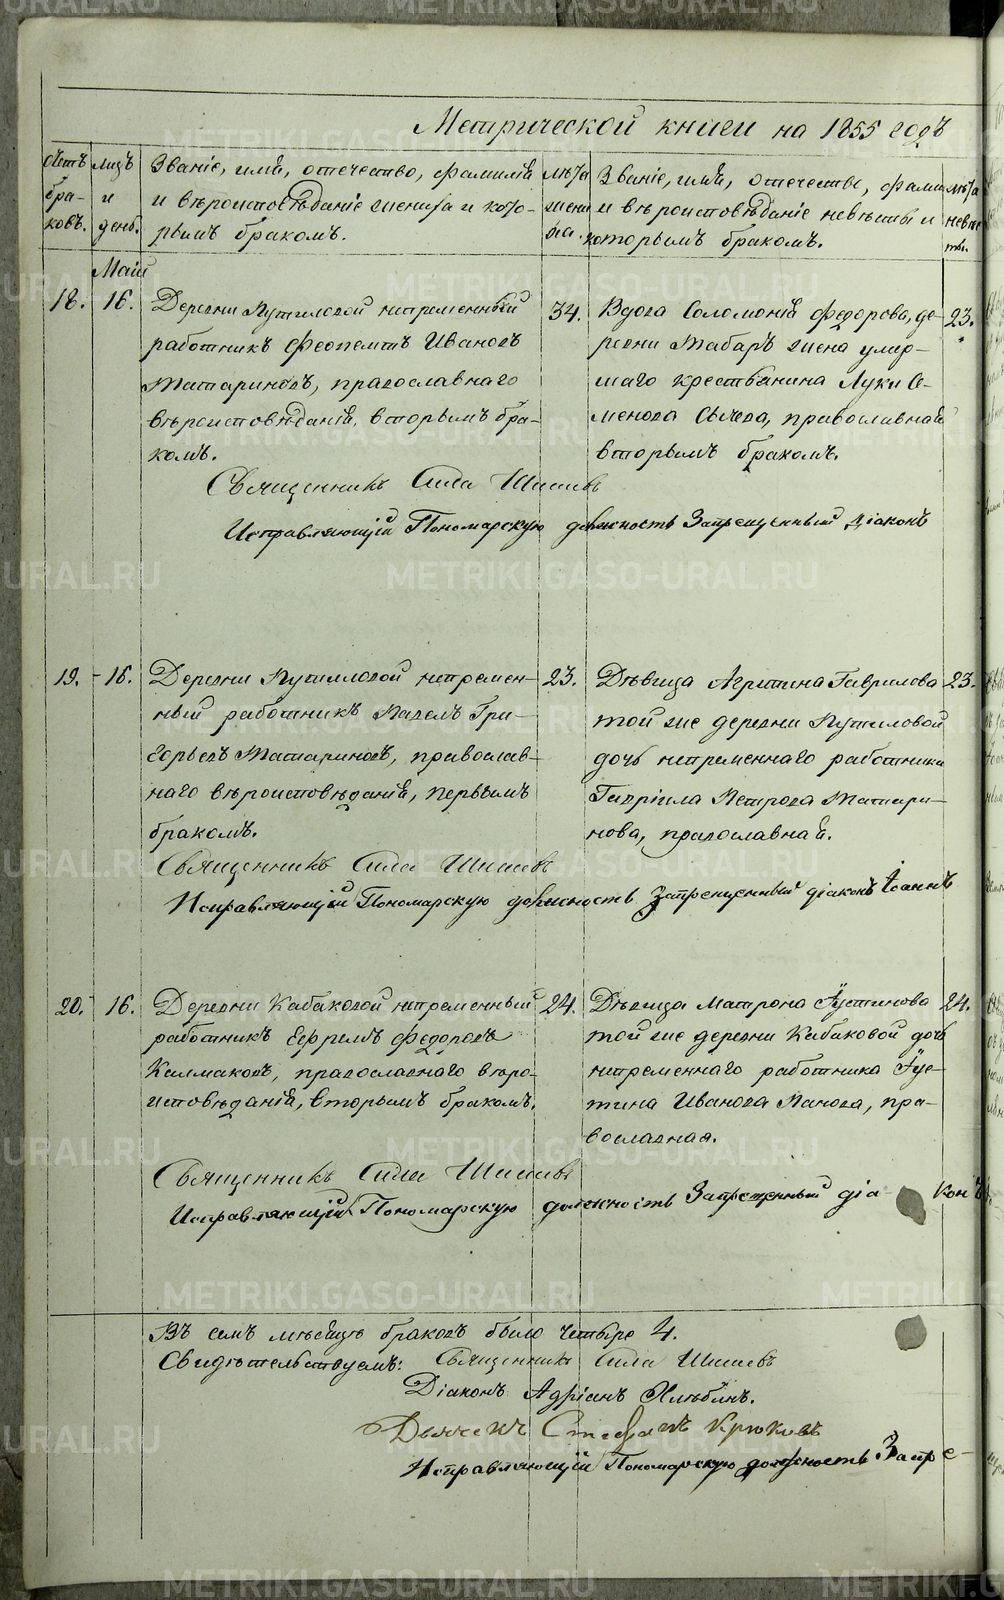 Метрической книги на 1855 годъ
счетъ браковъ.
мѣсяцъ и день.
Званіе, имя, отечество, фамилія
и вѣроисповѣданіе жениха и кото-
рымъ бракомъ.
лѣта жениха.
Званіе, имя, отечество, фамилія
и вѣроисповѣданіе невѣсты и
которымъ бракомъ.
лѣта невѣсты.
Май
18. 16.
Деревни Путиловой непременный
работникъ Феопемптъ Ивановъ
Татариновъ, православнаго
вѣроисповѣданія, вторымъ бра-
комъ.
34.
Вдова Соломонія Федорова, де-
ревни Табаръ жена умер-
шаго крестьянина Луки Се-
менова Сычева, православная
вторымъ бракомъ.
23.
Священникъ Сила
Исправляющій Пономарскую должность Запрещенный діаконъ
19. 16.
Деревни Путиловой непремен-
ный работникъ Павелъ Гри-
горьевъ Татариновъ, православ-
наго вѣроисповѣданія, первымъ
бракомъ.
23.
Дѣвица Агрипина Гаврилова
той же деревни Путиловой
дочь непременнаго работника
Гавріила Петрова Татари-
нова, православная.
23.
Священникъ Сила
Исправляющій Пономарскую должность Запрещенный діаконъ Іоаннъ
20. 16.
Деревни Кабаковой непременный
работникъ Ефремъ Федоровъ
Калмаковъ, православнаго вѣро-
исповѣданія, вторымъ бракомъ.
24.
Дѣвица Матрона Іустинова
той же деревни Кабаковой дочь
непременнаго работника Іус-
тина Иванова Панова, пра-
вославная.
24.
Священникъ Сила
Исправляющій Пономарскую должность Запрещенный діа- конъ
Въ семъ мѣсяцѣ браковъ было четыре 4.
Свидѣтельствуемъ: Священникъ Сила
Діаконъ Адріанъ Хлѣбинъ.
Дьячекъ Стефанъ Крюковъ
Исправляющій Пономарскую должность Запре-
METRIKI.GASO-URAL.RU